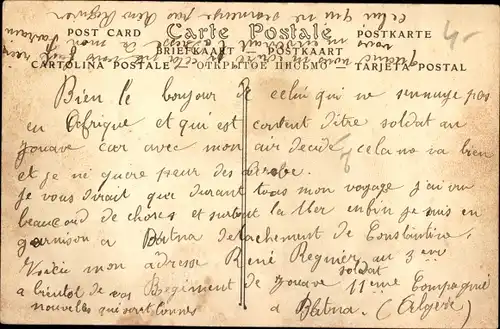 POST CARD
Carte Postale
POSTKARTE
BRIEFKAART
POSTKAART
CARTOLINA POSTALE
ОТКРЫТОЕ ПИСЬМО
TARJETA POSTAL
4-
Bien le bonjour de celui qui ne s'ennuye pas
en Afrique et qui est content d'être soldat au
zouave car avec mon air decidé cela va bien
et je ne guere peur des Arabe.
je vous dirait que durant tous mon voyage j'ai vu
beaucoup de choses et surtout la Mer enfin je suis en
garnison a Batna detachement de Constantine.
Voici mon adresse René Regnier au 3em
Regiment de zouave soldat 11eme Compagnie
a Batna (Algérie)
a bientot de vos
nouvelles qui seront bonnes